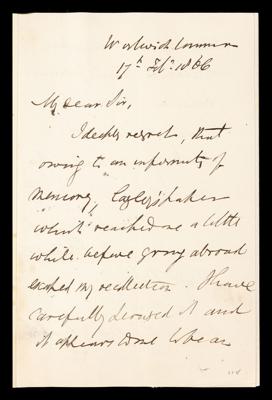 Woolwich Common
17th Feby 1866
My dear Sir,
I deeply regret, that
owing to an infirmity of
memory, Cayley's paper
which reached me a little
while before going abroad
escaped my recollection. I have
carefully perused it and
it appears to me to be an